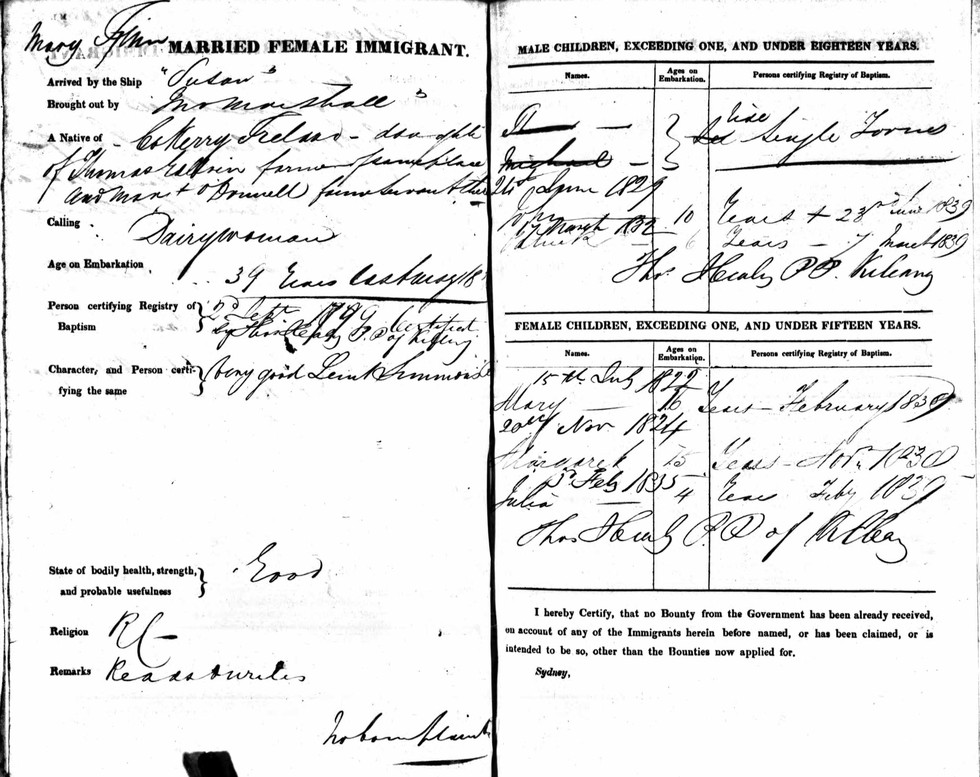 Mary MARRIED FEMALE IMMIGRANT.
Arrived by the Ship "Susan"
Brought out by Jno Marshall
A Native of Co Kerry Ireland - daughter
of Thomas farmer same place
and Mary O'Donnell farm servant
Calling Dairywoman
Age on Embarkation 39 Years last
Person certifying Registry of Baptism 2nd Sept 1799 Certified
by Thos Healy P.P. of
Character, and Person certifying the same Very good Simmons
State of bodily health, strength, and probable usefulness Good
Religion RC
Remarks Reads & writes
No complaint
MALE CHILDREN, EXCEEDING ONE, AND UNDER EIGHTEEN YEARS.
Names. Ages on Embarkation. Persons certifying Registry of Baptism.
Vide
Single Forms
Michael
24th June 1829
John 10 Years + 23rd June 1839
17 March 1832
Patrick 6 Years - 7 March 1839
Thos Healy P.P.
FEMALE CHILDREN, EXCEEDING ONE, AND UNDER FIFTEEN YEARS.
Names. Ages on Embarkation. Persons certifying Registry of Baptism.
15th July 1822
Mary 16 Years - February 1839
20th Nov 1824
Margaret 15 Years - Novr 1838
3rd Feby 1835
Julia 4 Years Feby 1839
Thos Healy P.P. of
I hereby Certify, that no Bounty from the Government has been already received,
on account of any of the Immigrants herein before named, or has been claimed, or is
intended to be so, other than the Bounties now applied for.
Sydney,